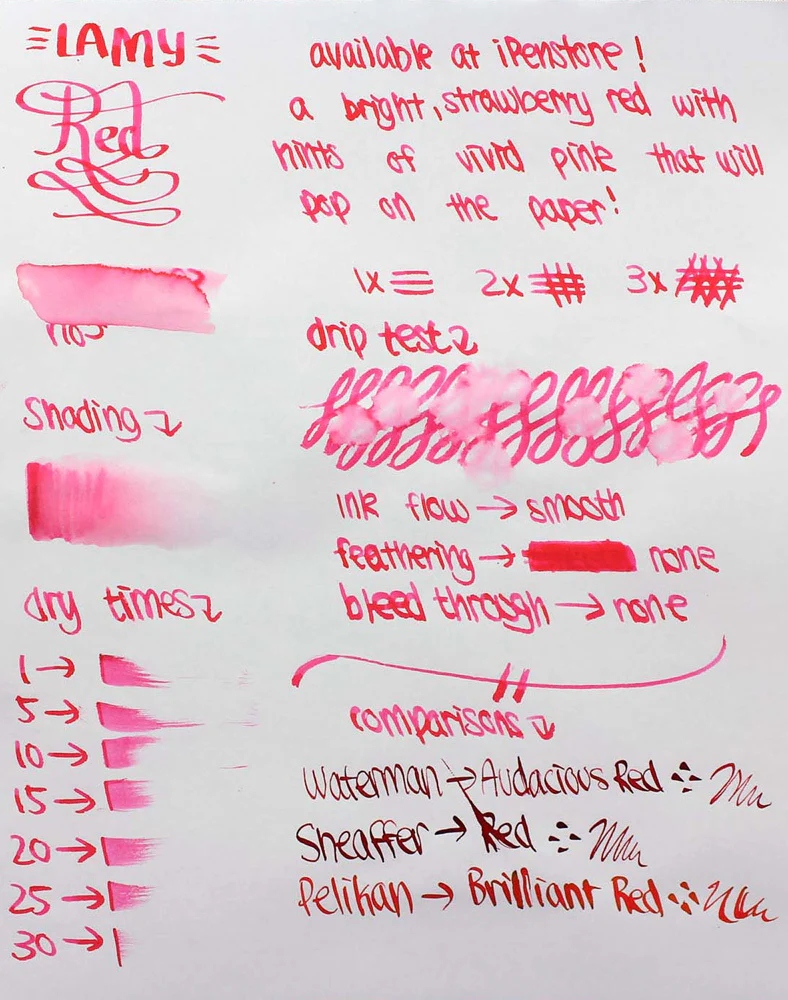 LAMY
Red
available at iPenstore!
a bright, strawberry red with
hints of vivid pink that will
pop on the paper!
1x 2x 3x
drip test
shading
ink flow → smooth
feathering → none
bleed through → none
dry times
1 →
5 →
10 →
15 →
20 →
25 →
30 →
comparisons
Waterman → Audacious Red
Sheaffer → Red
Pelikan → Brilliant Red